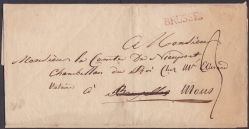 BRUSSEL
A Monsieur
Monsieur le Comte De
Chambellan du Roi Chez Mr
à Bruxelles Mons